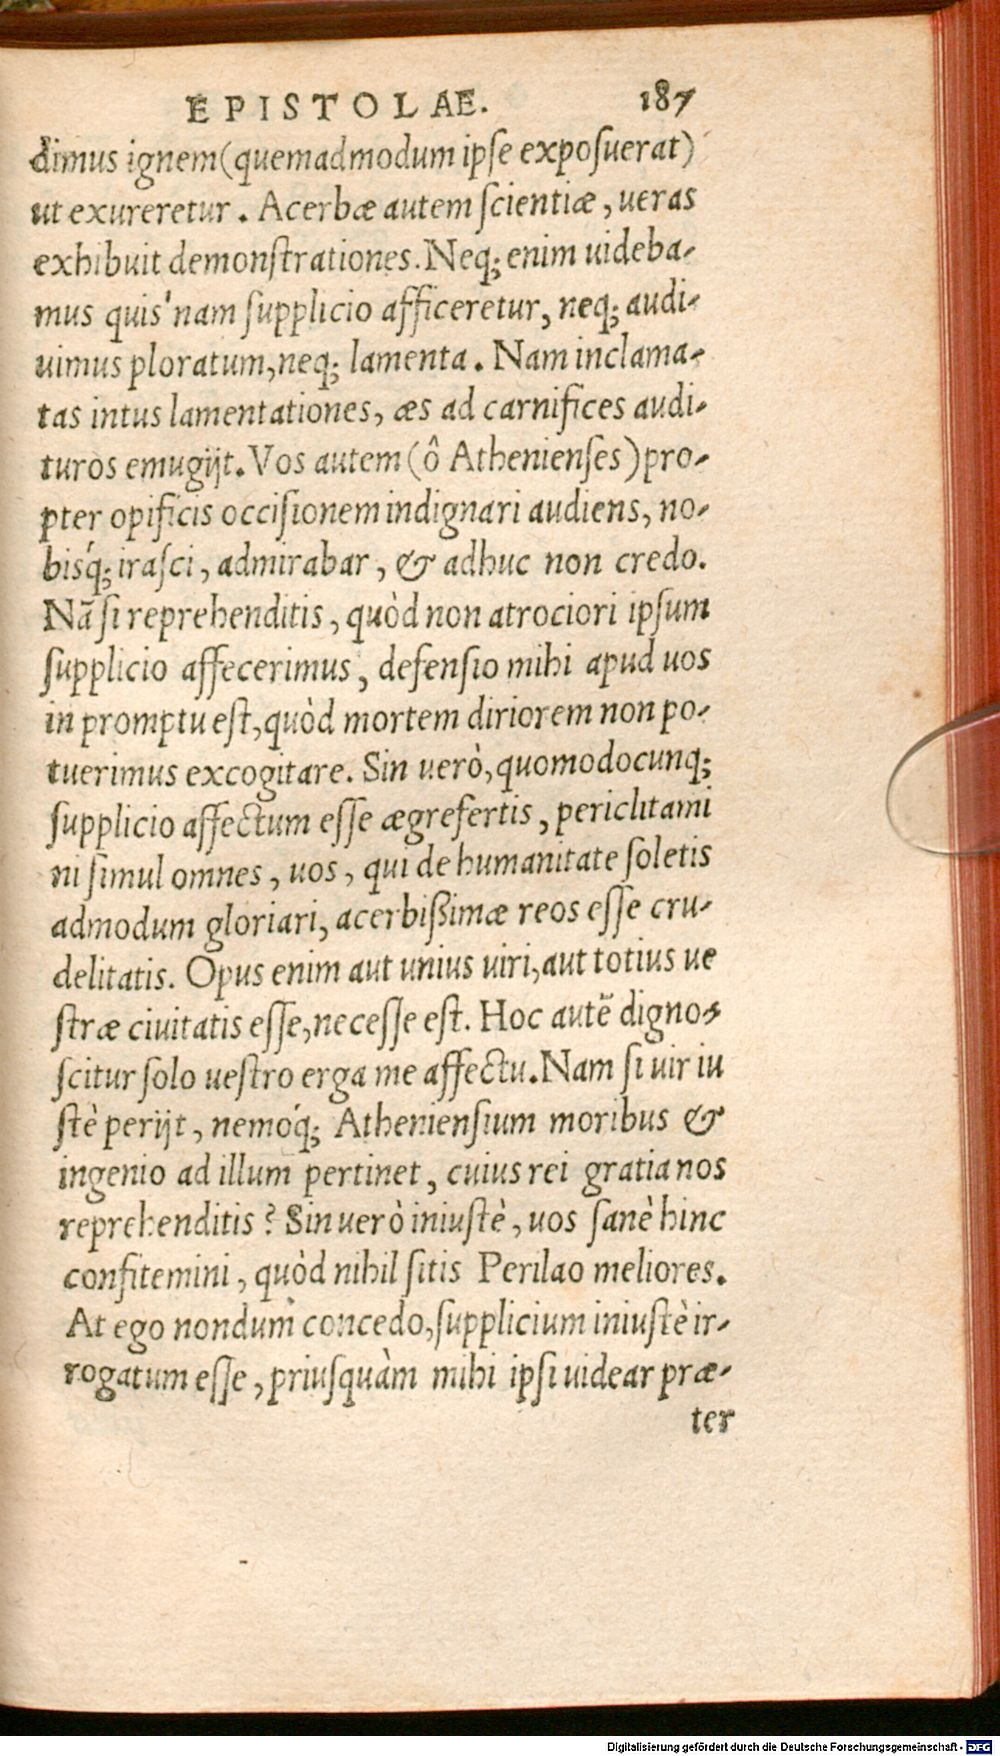 EPISTOLAE. 187
dimus ignem (quemadmodum ipſe expoſuerat)
ut exureretur. Acerbæ autem ſcientiæ, ueras
exhibuit demonſtrationes. Neq; enim uideba-
mus quis'nam ſupplicio afficeretur, neq; audi-
uimus ploratum, neq; lamenta. Nam inclama-
tas intus lamentationes, æs ad carnifices audi-
turos emugijt. Vos autem (ô Athenienſes) pro-
pter opificis occiſionem indignari audiens, no-
bisq́; iraſci, admirabar, & adhuc non credo.
Nã ſi reprehenditis, quòd non atrociori ipſum
ſupplicio affecerimus, defenſio mihi apud uos
in promptu eſt, quòd mortem diriorem non po-
tuerimus excogitare. Sin uerò, quomodocunq;
ſupplicio affectum eſſe ægrefertis, periclitami
ni ſimul omnes, uos, qui de humanitate ſoletis
admodum gloriari, acerbißimæ reos eſſe cru-
delitatis. Opus enim aut unius uiri, aut totius ue
ſtræ ciuitatis eſſe, neceſſe eſt. Hoc autẽ digno-
ſcitur ſolo ueſtro erga me affectu. Nam ſi uir iu
ſtè perijt, nemoq́; Athenienſium moribus &
ingenio ad illum pertinet, cuius rei gratia nos
reprehenditis? Sin uerò iniuſtè, uos ſanè hinc
confitemini, quòd nihil ſitis Perilao meliores.
At ego nondum concedo, ſupplicium iniuſtè ir-
rogatum eſſe, priuſquàm mihi ipſi uidear præ-
ter
Digitalisierung gefördert durch die Deutsche Forschungsgemeinschaft - DFG